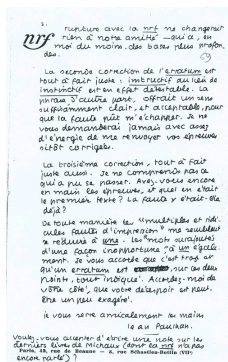 2.
nrf
rupture avec la nrf ne changerait
rien à notre amitié — qui a, en
moi du moins, des bases plus profon-
des.
La seconde correction de l'erratum est
tout à fait juste : instructif au lieu de
instinctif est en effet détestable. La
phrase d'autre part, offrait un sens
suffisamment clair, et acceptable, pour
que la faute pût m'échapper. Je ne
vous demanderai jamais avec assez
d'énergie de me renvoyer vos épreuves
sitôt corrigées.
La troisième correction, tout à fait
juste aussi. Je ne comprends pas ce
qui a pu se passer. Avez-vous encore
en main les épreuves, et quel en était
le premier texte ? La faute y était-elle
déjà ?
De toute manière les "multiples et ridi-
cules fautes d'impression" me semblent
se réduire à une. Les "mots
d'une façon inopportune", à un
ment. Je vous accorde que c'est trop et
qu'un erratum est sur ces deux
points, tout indiqué. Accordez-moi de
votre côté, que votre désespoir est peut-
être un peu exagéré.
je vous serre amicalement les mains
Jean Paulhan.
Voulez-vous accepter d'écrire une note sur les
derniers livres de Michaux (dont la nrf n'a pas
Paris, 43, rue de Beaune — 5, rue Sébastien-Bottin (VIIe)
encore parlé) ?